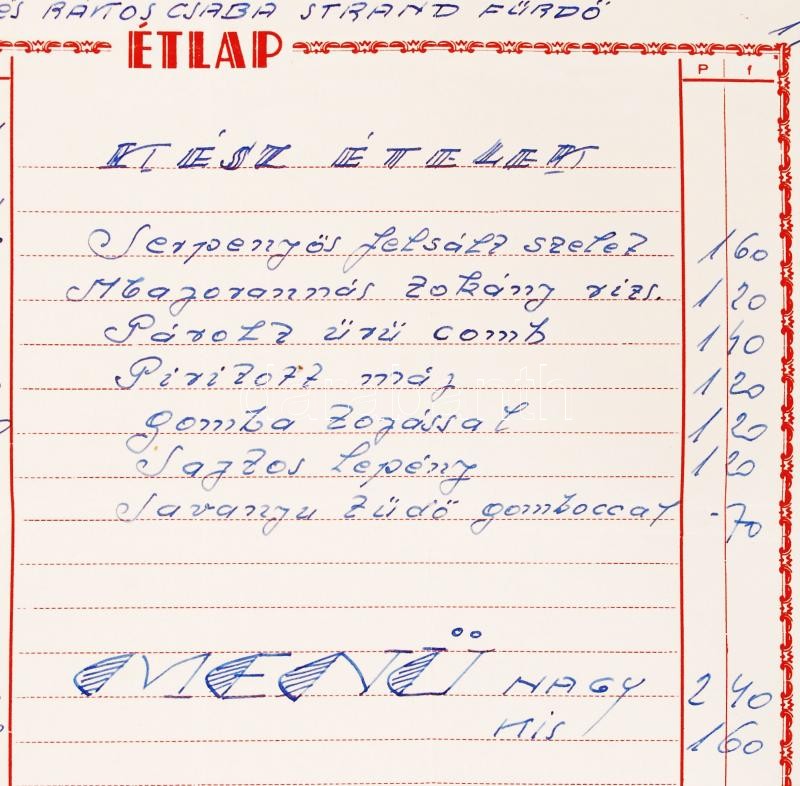 ÉS RÁTOS CSABA STRAND FÜRDŐ
ÉTLAP
P f
KÉSZ ÉTELEK
Serpenyős felsált szelet 1 60
Majorannás tokány rizs. 1 20
Párolt ürü comb 1 40
Piritott máj 1 20
gomba tojással 1 20
Sajtos lepény 1 20
Savanyu tüdő gomboccal - 70
MENÜ NAGY 2 40
KIS 1 60
darabanth